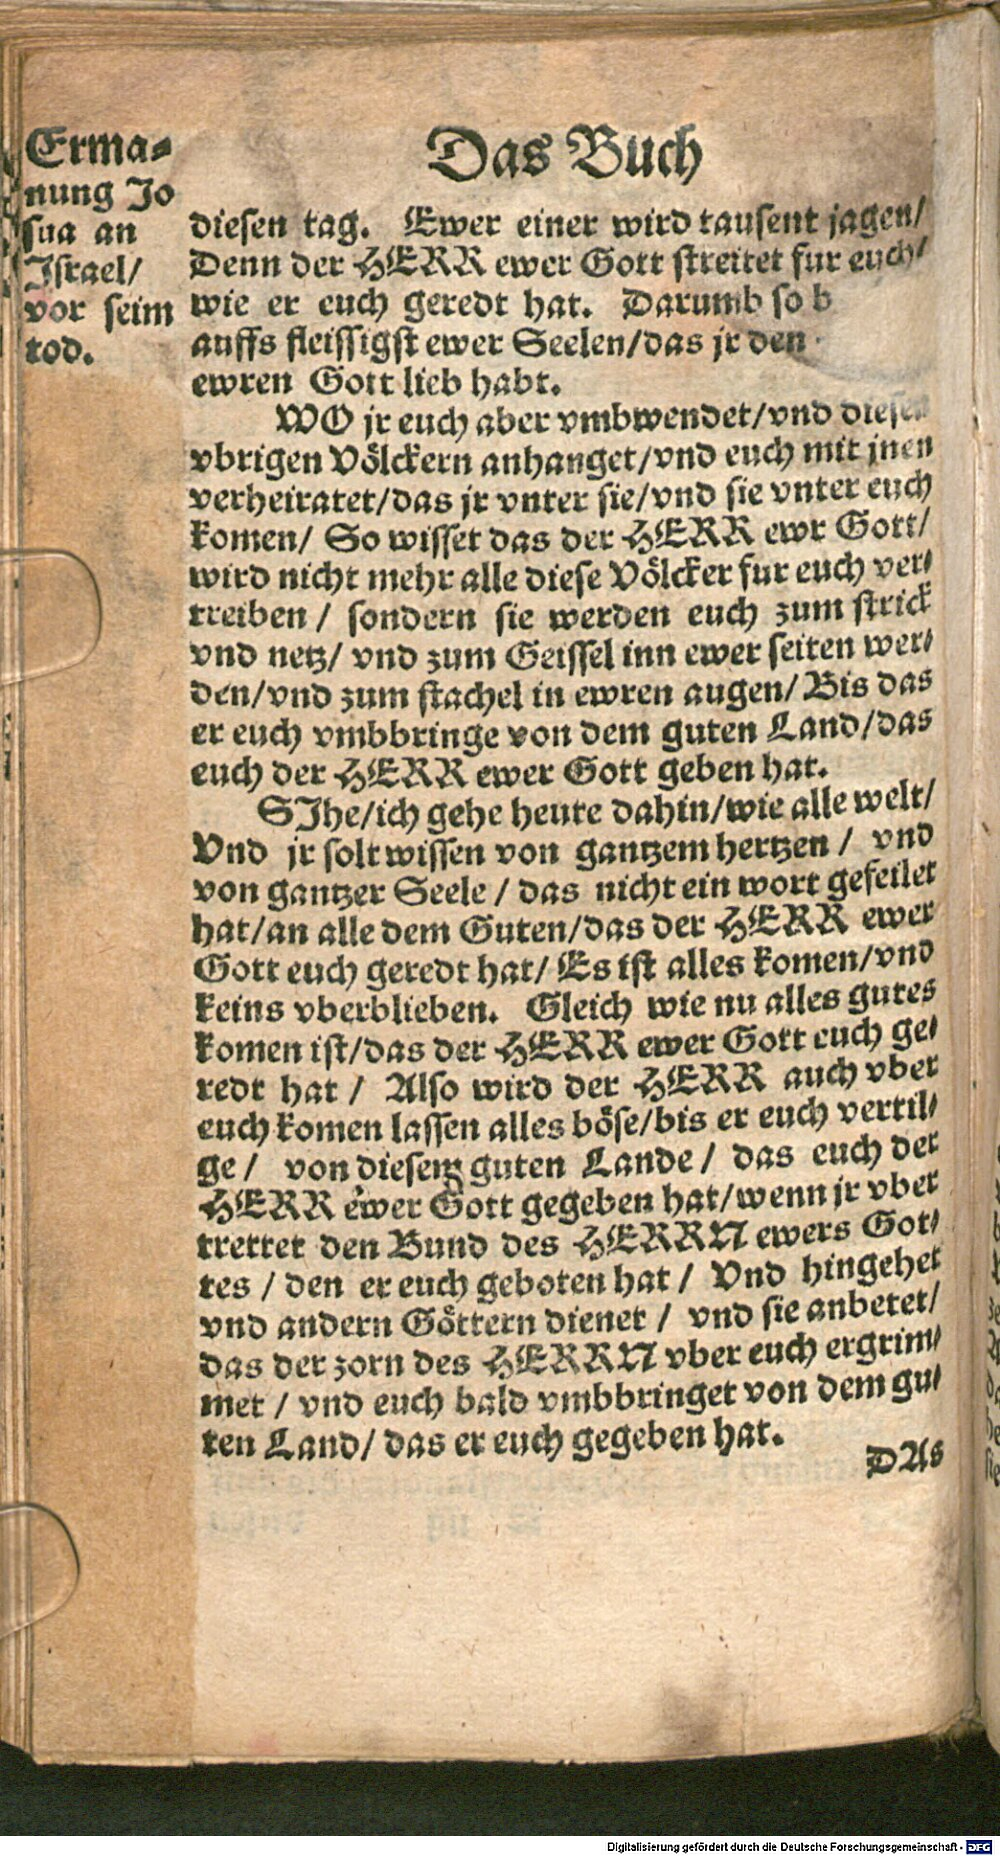 Das Buch
Erma-
nung Jo
sua an
Israel/
vor seim
tod.
diesen tag. Ewer einer wird tausent jagen/
Denn der HERR ewer Gott streitet fur euch/
wie er euch geredt hat. Darumb so
auffs fleissigst ewer Seelen/das jr den
ewren Gott lieb habt.
WO jr euch aber vmbwendet/vnd diesen
vbrigen Völckern anhanget/vnd euch mit jnen
verheiratet/das jr vnter sie/vnd sie vnter euch
komen/ So wisset das der HERR ewr Gott/
wird nicht mehr alle diese Völcker fur euch ver-
treiben / sondern sie werden euch zum strick
vnd netz/ vnd zum Geissel inn ewer seiten wer-
den/vnd zum stachel in ewren augen/ Bis das
er euch vmbbringe von dem guten Land/das
euch der HERR ewer Gott geben hat.
SIhe/ich gehe heute dahin/wie alle welt/
Vnd jr solt wissen von gantzem hertzen / vnd
von gantzer Seele / das nicht ein wort gefeilet
hat/an alle dem Guten/das der HERR ewer
Gott euch geredt hat/ Es ist alles komen/vnd
keins vberblieben. Gleich wie nu alles gutes
komen ist/das der HERR ewer Gott euch ge-
redt hat / Also wird der HERR auch vber
euch komen lassen alles böse/bis er euch vertil-
ge / von diesem guten Lande / das euch der
HERR ewer Gott gegeben hat/wenn jr vber
trettet den Bund des HERRN ewers Got-
tes / den er euch geboten hat / Vnd hingehet
vnd andern Göttern dienet / vnd sie anbetet/
das der zorn des HERRN vber euch ergrim-
met / vnd euch bald vmbbringet von dem gu-
ten Land/ das er euch gegeben hat.
DAs
Digitalisierung gefördert durch die Deutsche Forschungsgemeinschaft - DFG